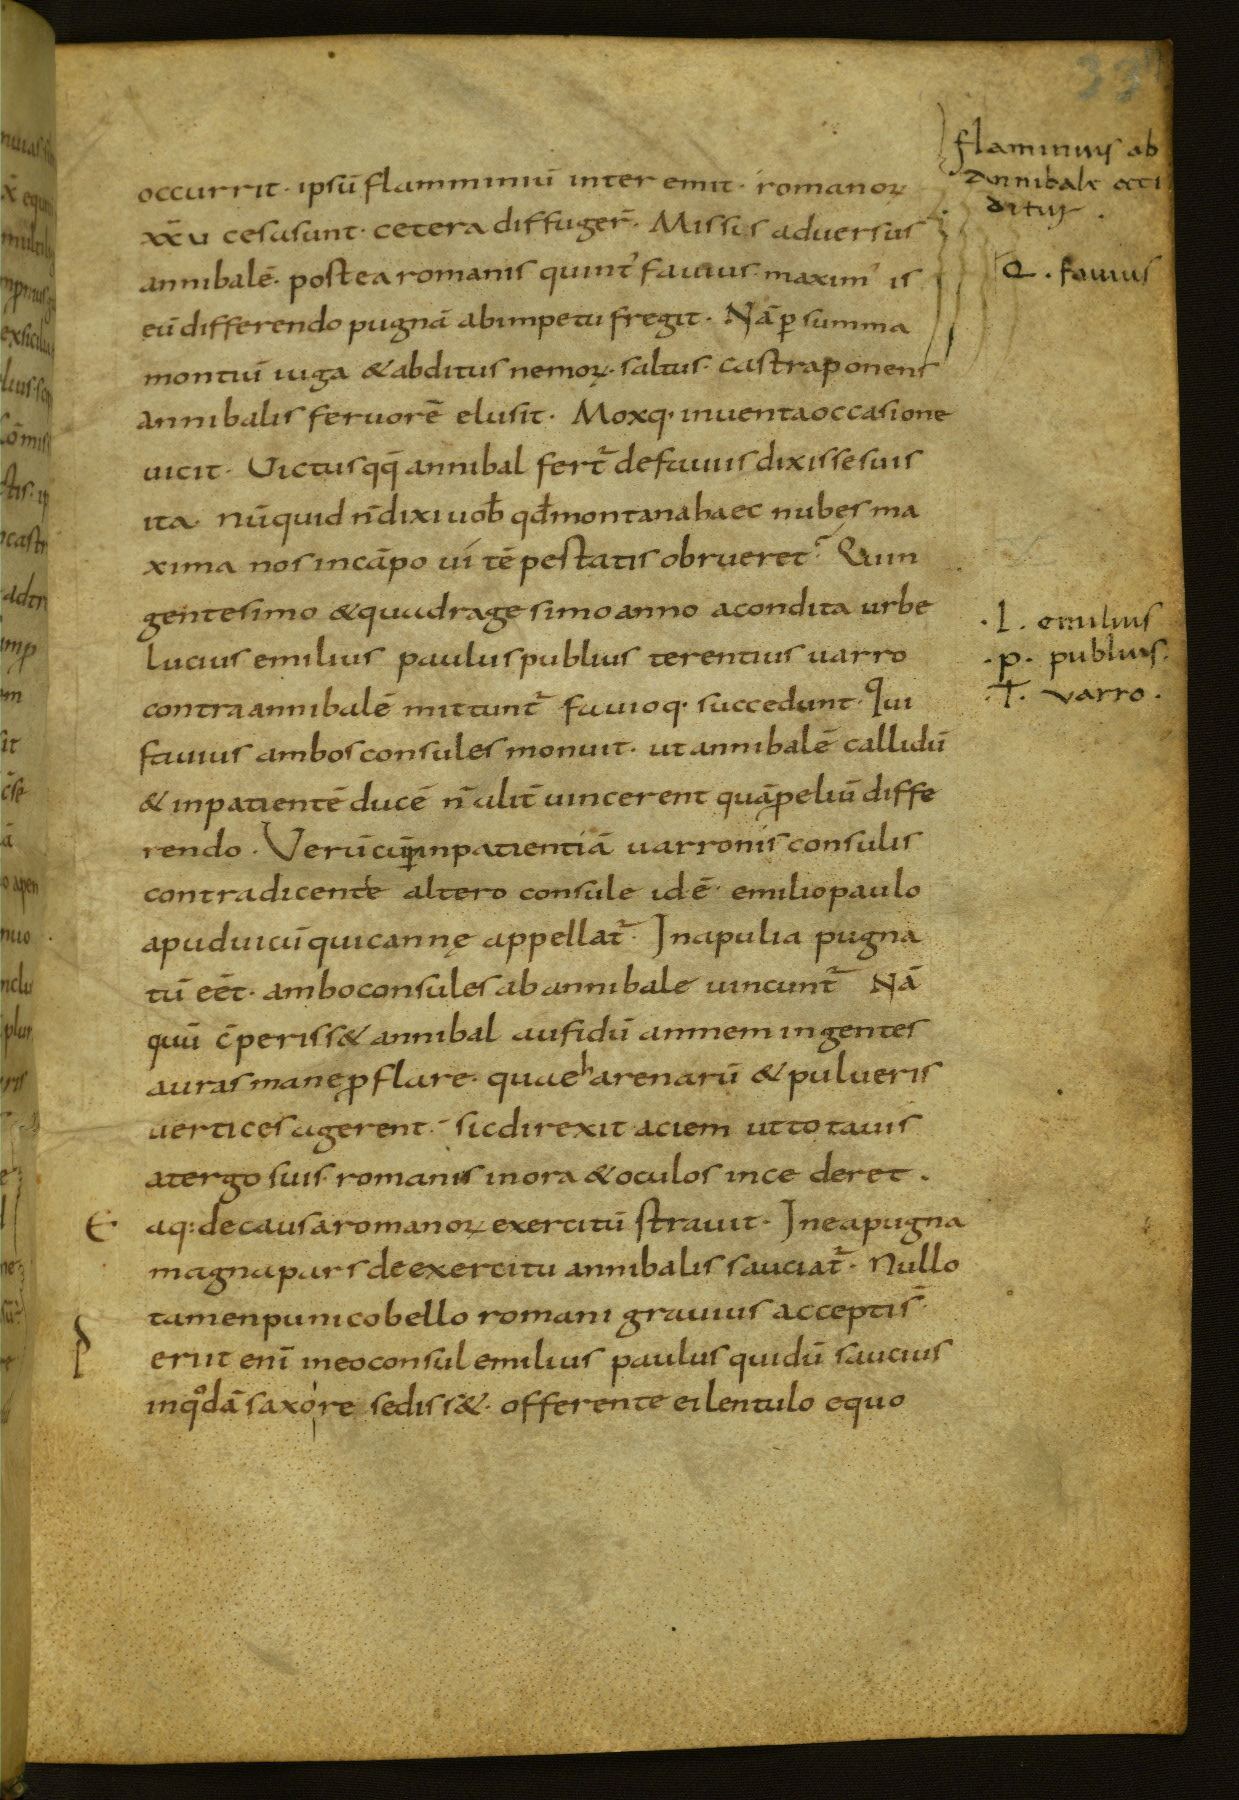 33
flaminius ab
Annibale occi
ditur .
Q . fauius
occurrit · ipsū flamminiū inter emit · romanoꝝ
xx̄u cesasunt · cetera diffuger̄ · Missus aduersus
annibalē · postea romanis quint᾽ fauius · maxim᾽ is
eū differendo pugnā abimpetu fregit · Nā ꝑ summa
montiū iuga & abditus nemoꝝ · saltus · castraponens
annibalis feruorē elusit · Moxq· inuentaoccasione
uicit · Uictusqq̄ annibal fert̄ defauius dixissesuis
ita · nūquid n̄dixi uob̄ qd̄montanahaec nubes ma
xima nos incāpo ui tēpestatis obrueret · Quin
gentesimo & quadragesimoanno acondita urbe
Lucius emilius pauluspublius terentius uarro
contraannibalē mittunt̄ fauioq· succedunt · Qui
fauius ambosconsules monuit · ut annibalē callidū
& inpatientē ducē n̄ alit̄ uincerent quāpeliū diffe
rendo · Verūcūꝑinpatientiā uarronis consulis
contradicente altero consule id·ē· emiliopaulo
apuduicūquicannę appellat̄ · Inapulia pugna
tū eēt · amboconsules ab annibale uincunt̄ Nā
quū c̄periss& annibal aufidū amnem ingentes
auras mane ꝓflare · quaeharenarū & pulueris
uertices agerent · sicdirexit aciem uttotauis
atergo suis · romanis inora & oculos ince deret .
E aq: decausaromanoꝝ exercitū strauit · Ineapugna
magnapars deexercitu annibalis sauciat̄ · Nullo
tamenpunicobello romani grauius acceptis̄
P eriit enī ineoconsul emilius paulus quidū saucius
inqodā saxo re sediss& · offerente ei lentulo equo
· l . emilius
· p · publius ·
· T · varro ·